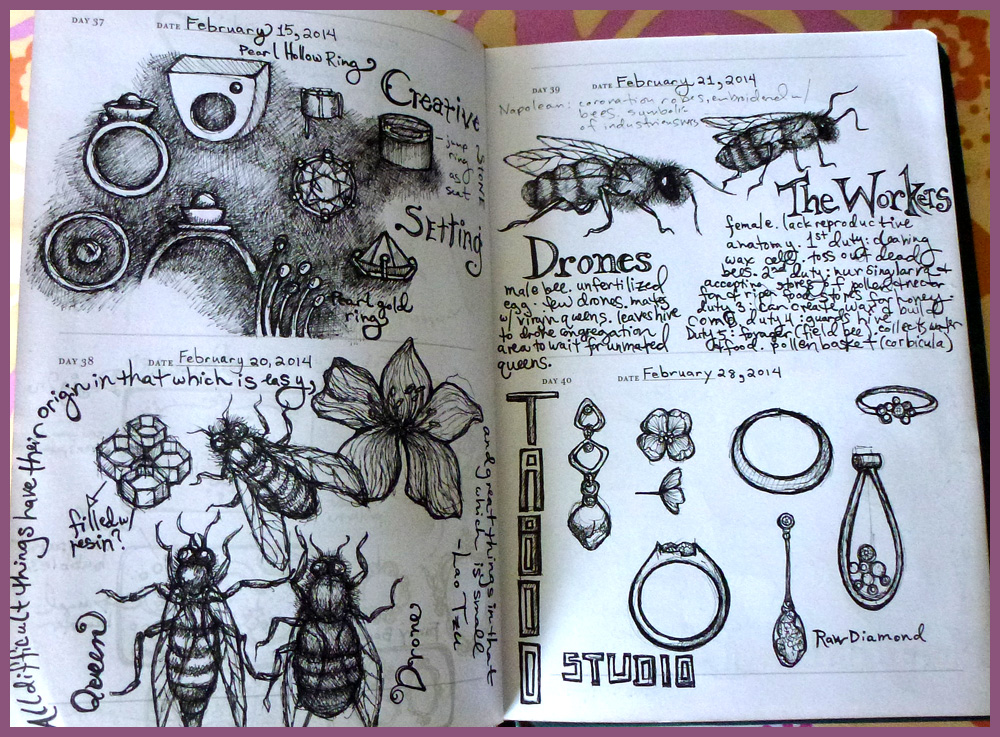 DAY 37 DATE February 15, 2014
Pearl Hollow Ring
Creative
Stone
Setting
- jump
ring
as
seat
Pearl gold
ring
DAY 38 DATE February 20, 2014
All difficult things have their origin in that which is easy,
and great things in that
which is small
- Lao Tzu
filled w/
resin?
Queen
Drone
DAY 39 DATE February 21, 2014
Napolean: coronation robes, embroidered w/
bees. symbolic
of industriousness
The Workers
female. lack reproductive
anatomy. 1st duty: cleaning
wax cells. toss out dead
bees. 2nd duty: nursing larva &
accepting stores of pollen & nectar
for honey.
duty: can create wax & build
comb. duty: guards hive.
Duty 5: forager (field bee) collects water
or food. pollen basket (corbicula)
Drones
male bee. unfertilized
egg. few drones. mates
w/ virgin queens. leaves hive
to drone congregation
area to wait for unmated
queens.
DAY 40 DATE February 28, 2014
STUDIO
Raw Diamond